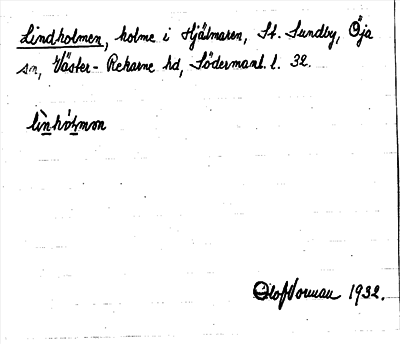 Lindholmen, holme i Hjälmaren, St. Sundby, Öja
sn, Väster-Rekarne hd, Södermanl. l. 32.
lìnhólmɷn
Olof Norman 1932.